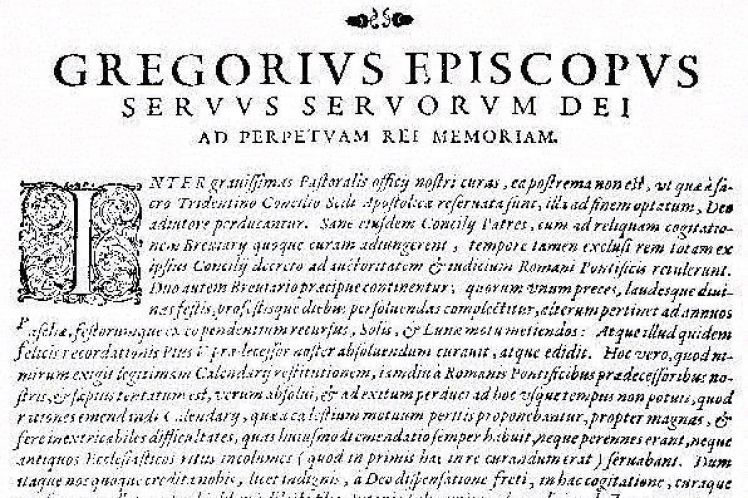 GREGORIVS EPISCOPVS
SERVVS SERVORVM DEI
AD PERPETVAM REI MEMORIAM.
INTER grauissimas Pastoralis officij nostri curas, ea postrema non est, vt quæ à sa-
cro Tridentino Concilio Sedi Apostolicæ reseruata sunt, illa ad finem optatum, Deo
adiutore perducantur. Sane eiusdem Concilij Patres, cum ad reliquam cogitatio-
nem Breuiarij quoque curam adiungerent, tempore tamen exclusi rem totam ex
ipsius Concilij decreto ad auctoritatem & iudicium Romani Pontificis retulerunt.
Duo autem Breuiario præcipue continentur, quorum vnum preces, laudesque diui-
nas festis, profestisque diebus persoluendas complectitur, alterum pertinet ad annuos
Paschæ, festorumque ex eo pendentium recursus, Solis, & Lunæ motu metiendos: Atque illud quidem
felicis recordationis Pius V prædecessor noster absoluendum curauit, atque edidit. Hoc vero, quod ni-
mirum exigit legitimam Calendarij restitutionem, iamdiu à Romanis Pontificibus prædecessoribus no-
stris, & sæpius tentatum est, verum absolui, & ad exitum perduci ad hoc vsque tempus non potuit, quod
rationes emendandi Calendarij, quæ a cælestium motuum peritis proponebantur, propter magnas, &
fere inextricabiles difficultates, quas huiusmodi emendatio semper habuit, neque perennes erant, neque
antiquos Ecclesiasticos ritus incolumes (quod in primis hac in re curandum erat) seruabant. Dum
itaque nos quoque credita nobis, licet indignis, à Deo dispensatione freti, in hac cogitatione, curaque